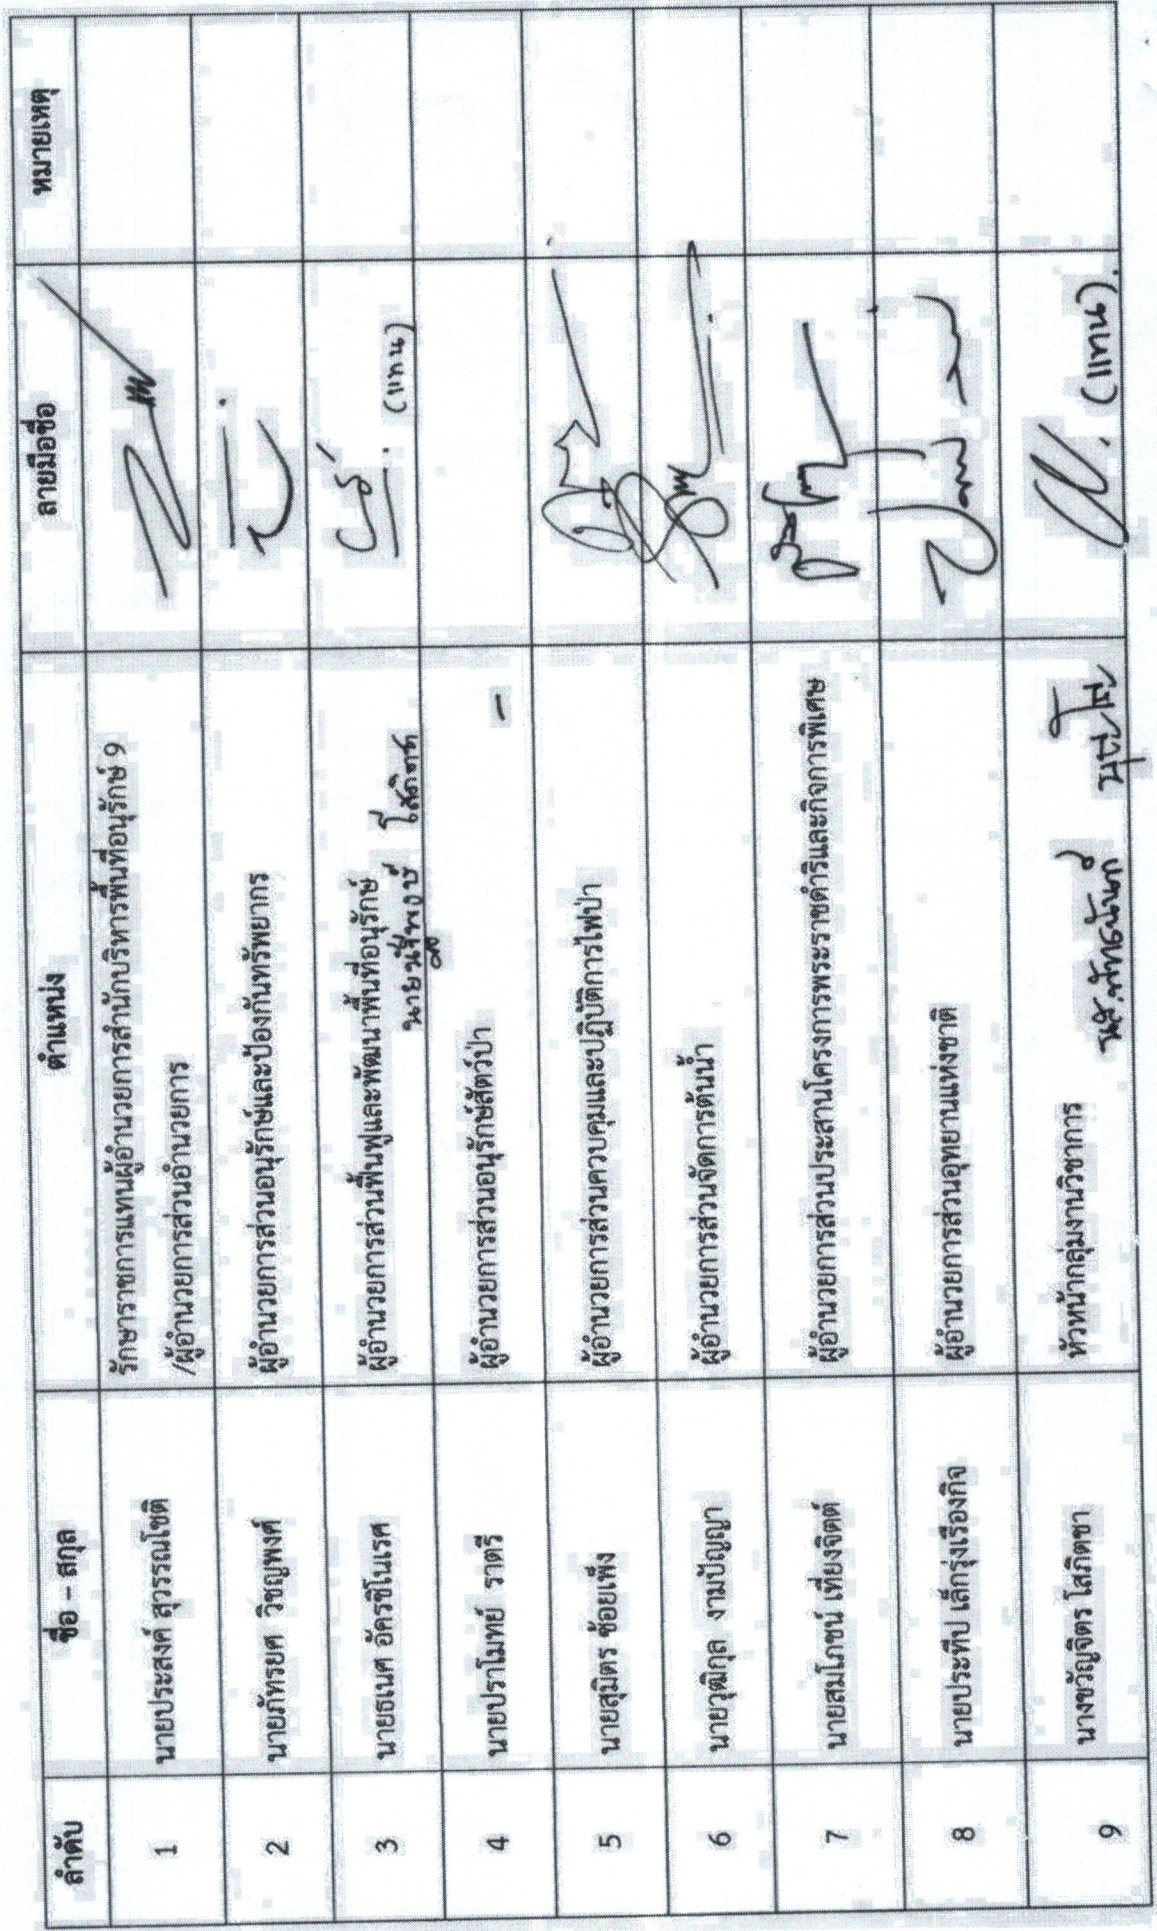 ลำดับ ชื่อ – สกุล ตำแหน่ง ลายมือชื่อ หมายเหตุ
1 นายประสงค์ สุวรรณโชติ รักษาราชการแทนผู้อำนวยการสำนักบริหารพื้นที่อนุรักษ์ 9
/ผู้อำนวยการส่วนอำนวยการ
2 นายภัทรยศ วิชญพงศ์ ผู้อำนวยการส่วนอนุรักษ์และป้องกันทรัพยากร
3 นายธเนศ อัครชิโนเรศ ผู้อำนวยการส่วนฟื้นฟูและพัฒนาพื้นที่อนุรักษ์ (แทน)
4 นายปราโมทย์ ราตรี ผู้อำนวยการส่วนอนุรักษ์สัตว์ป่า -
5 นายสุมิตร ช้อยเพ็ง ผู้อำนวยการส่วนควบคุมและปฏิบัติการไฟป่า
6 นายวุฒิกุล งามปัญญา ผู้อำนวยการส่วนจัดการต้นน้ำ
7 นายสมโภชน์ เที่ยงจิตต์ ผู้อำนวยการส่วนประสานโครงการพระราชดำริและกิจการพิเศษ
8 นายประทีป เล็กรุ่งเรืองกิจ ผู้อำนวยการส่วนอุทยานแห่งชาติ
9 นางขวัญจิตร โสภิตชา หัวหน้ากลุ่มงานวิชาการ (แทน)